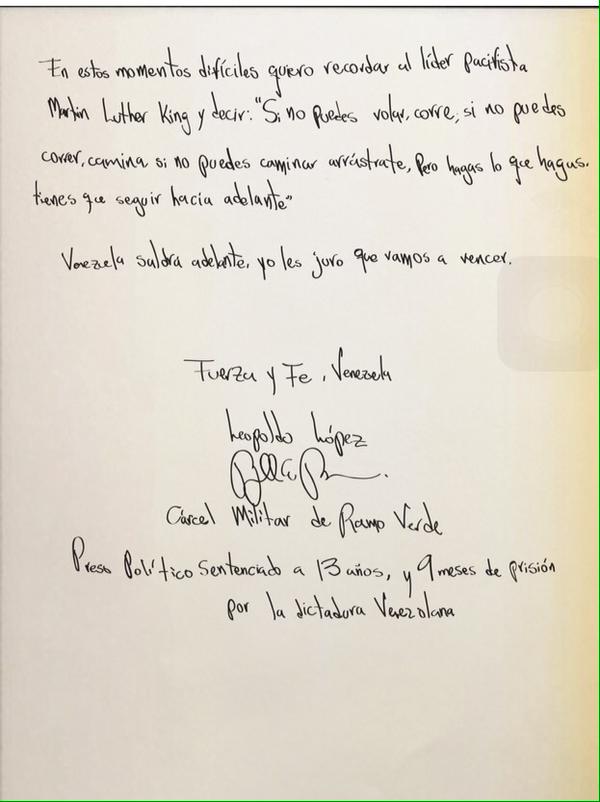 En estos momentos difíciles quiero recordar al líder pacifista
Martin Luther King y decir: "Si no puedes volar, corre, si no puedes
correr, camina si no puedes caminar arrástrate, Pero hagas lo que hagas,
tienes que seguir hacia adelante"
Venezuela saldrá adelante, yo les juro que vamos a vencer.
Fuerza y Fe, Venezuela
Leopoldo López
Cárcel Militar de Ramo Verde
Preso Político Sentenciado a 13 años, y 9 meses de prisión
por la dictadura Venezolana